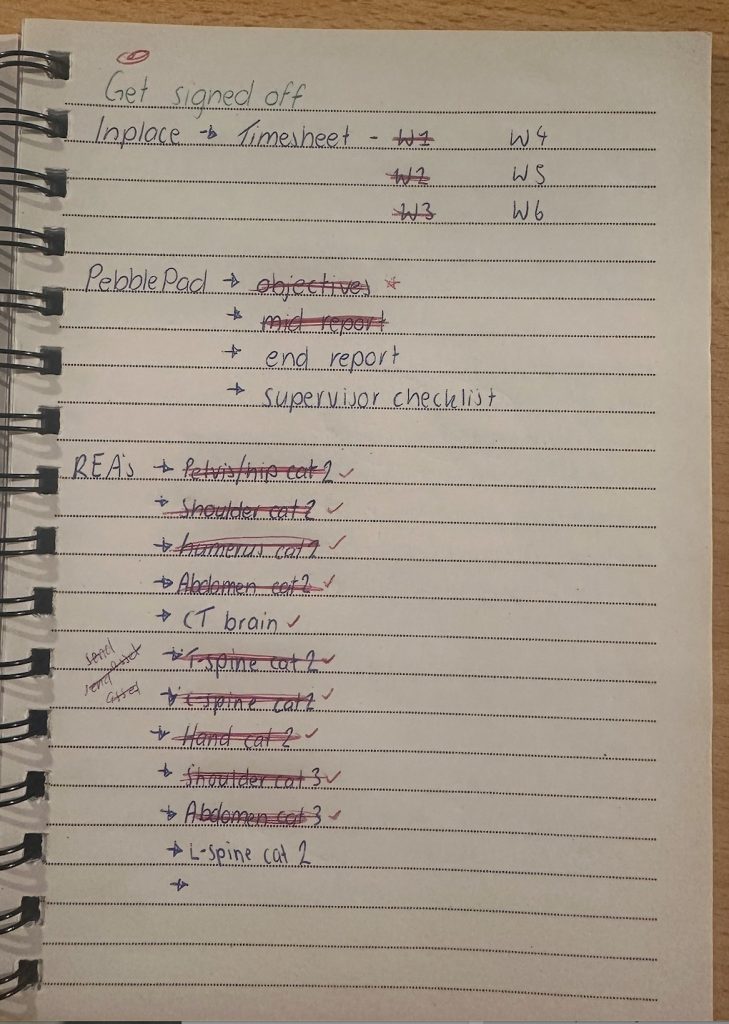 Get signed off
Inplace → Timesheet - W1 W4
W2 W5
W3 W6
PebblePad → objectives *
→ mid report
→ end report
→ supervisor checklist
REA's → Pelvis/hip cat 2 ✓
→ Shoulder cat 2 ✓
→ humerus cat 2 ✓
→ Abdomen cat 2 ✓
→ CT brain ✓
send
→ T-spine cat 2 ✓
→ C-spine cat 2 ✓
→ Hand cat 2 ✓
→ Shoulder cat 3 ✓
→ Abdomen cat 3 ✓
→ L-spine cat 2
→